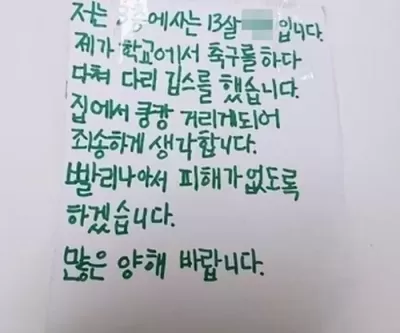 저는 층에사는 13살 입니다.
제가 학교에서 축구를 하다
다쳐 다리 깁스를 했습니다.
집에서 쿵캉 거리게되어
죄송하게 생각합니다.
빨리나아서 피해가없도록
하겠습니다.
많은 양해 바랍니다.